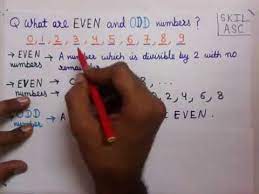 Q What are EVEN and ODD numbers?
SKIL ASC
0, 1, 2, 3, 4, 5, 6, 7, 8, 9
→ EVEN numbers → A number which is divisible by 2 with no
→ EVEN numbers → 2, 4, 6, 8
ODD number → A EVEN.